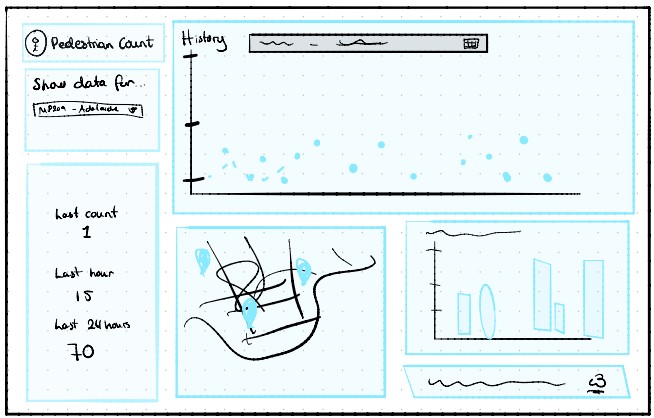 Pedestrian Count
Show data for...
MP20a - Adelaide
Last count
1
Last hour
15
Last 24 hours
70
History